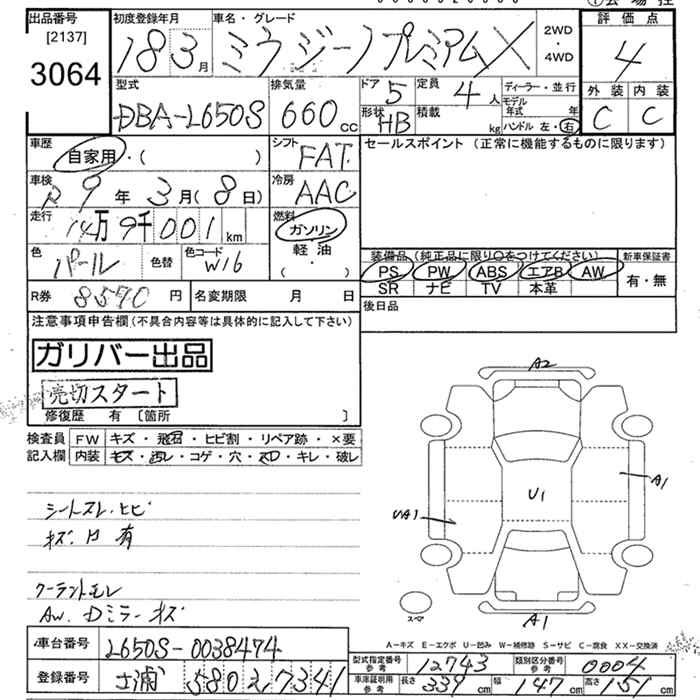 出品番号 初度登録年月 車名・グレード 2WD・4WD 評価点
[2137]
3064
18 3月 ミラジーノプレミアムX 4
型式 排気量 ドア 定員 ディーラー・並行 外装 内装
DBA-L650S 660cc 5 4人 モデル年式 年 C C
形状 HB 積載 kg ハンドル 左・右
車歴 自家用・( ) シフト FAT セールスポイント (正常に機能するものに限ります)
車検 R9年3月(8日) 冷房 AAC
走行 14万9千001km 燃料 ガソリン・軽油・( )
色 パール 色替 色コード W16
装備品(純正品に限り〇をつけてください) 新車保証書
PS PW ABS エアB AW 有・無
SR ナビ TV 本革
R券 8590円 名変期限 月 日 後日品
注意事項申告欄(不具合内容等は具体的に記入して下さい)
ガリバー出品
売切スタート
修復歴 有 〔箇所 〕
検査員 FW キズ・飛石・ヒビ割・リペア跡・×要
記入欄 内装 キズ・汚レ・コゲ・穴・スレ・キレ・破レ
シートスレ・ヒビ
キズ・凹 有
クーラントモレ
AW. Dミラーキズ
A2
U1
A1
UA1
A1
スペア
A-キズ E-エクボ U-凹み W-補修跡 S-サビ C-腐食 XX-交換済
車台番号 L650S-0038474
登録番号 土浦 580 7341
型式指定番号 参考 12743 類別区分番号 参考 0004
車庫証明用 参考 長さ 339cm 幅 147cm 高さ 151cm